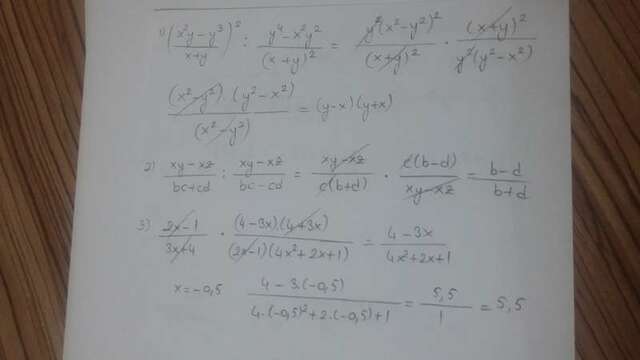 1) (x²y-y³ / x+y)² : y⁴-x²y² / (x+y)² = y²(x²-y²)² / (x+y)² · (x+y)² / y²(y²-x²)
(x²-y²)·(y²-x²) / (x²-y²) = (y-x)(y+x)
2) xy-xz / bc+cd : xy-xz / bc-cd = xy-xz / c(b+d) · c(b-d) / xy-xz = b-d / b+d
3) 2x-1 / 3x+4 · (4-3x)·(4+3x) / (2x-1)(4x²+2x+1) = 4-3x / 4x²+2x+1
x=-0,5 4-3·(-0,5) / 4·(-0,5)²+2·(-0,5)+1 = 5,5 / 1 = 5,5